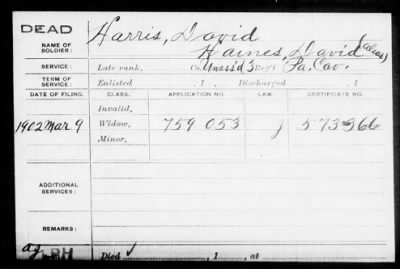 DEAD
NAME OF SOLDIER: Harris, David
Haines, David (alias)
SERVICE: Late rank, Co. Unass'd 3 Reg't Pa. Cav.
TERM OF SERVICE: Enlisted , 1 . Discharged , 1
DATE OF FILING. CLASS. APPLICATION NO. LAW. CERTIFICATE NO.
Invalid,
1902 Mar 9 Widow, 759 053 573 366
Minor,
ADDITIONAL SERVICES:
REMARKS:
Died , 1 , at